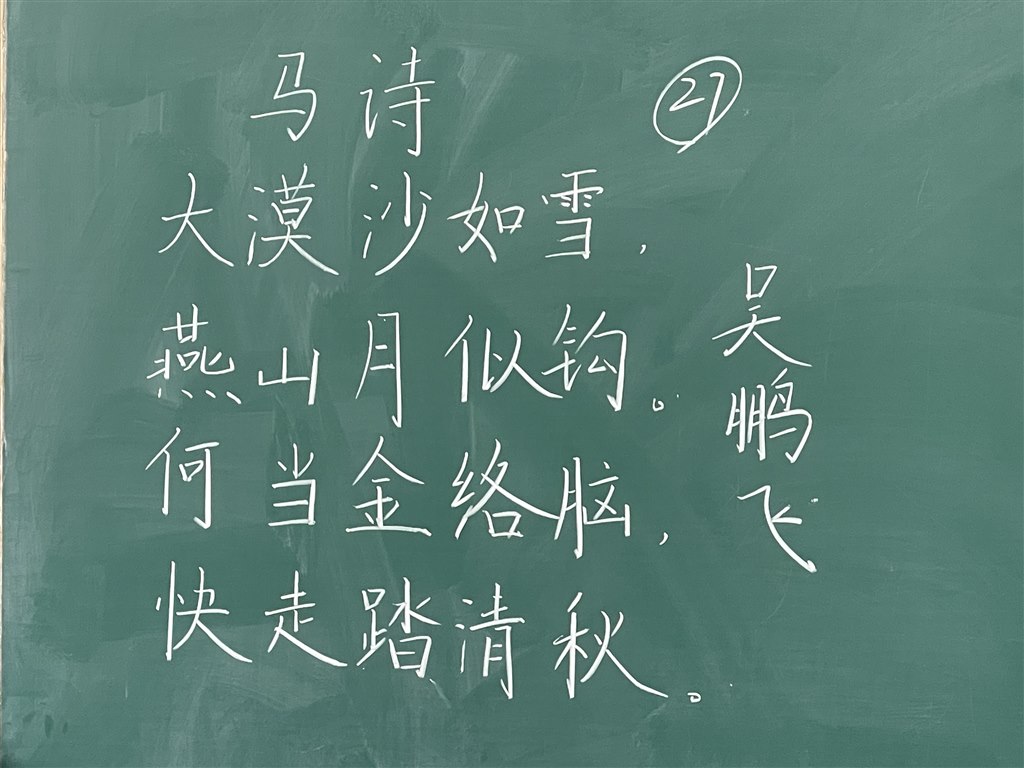 马诗
㉗
大漠沙如雪，
燕山月似钩。
何当金络脑，
快走踏清秋。
吴鹏飞